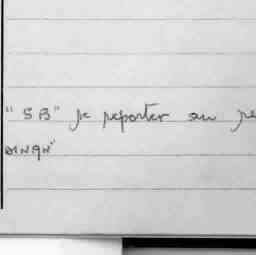 "SB" se reporter au re
DINAN"